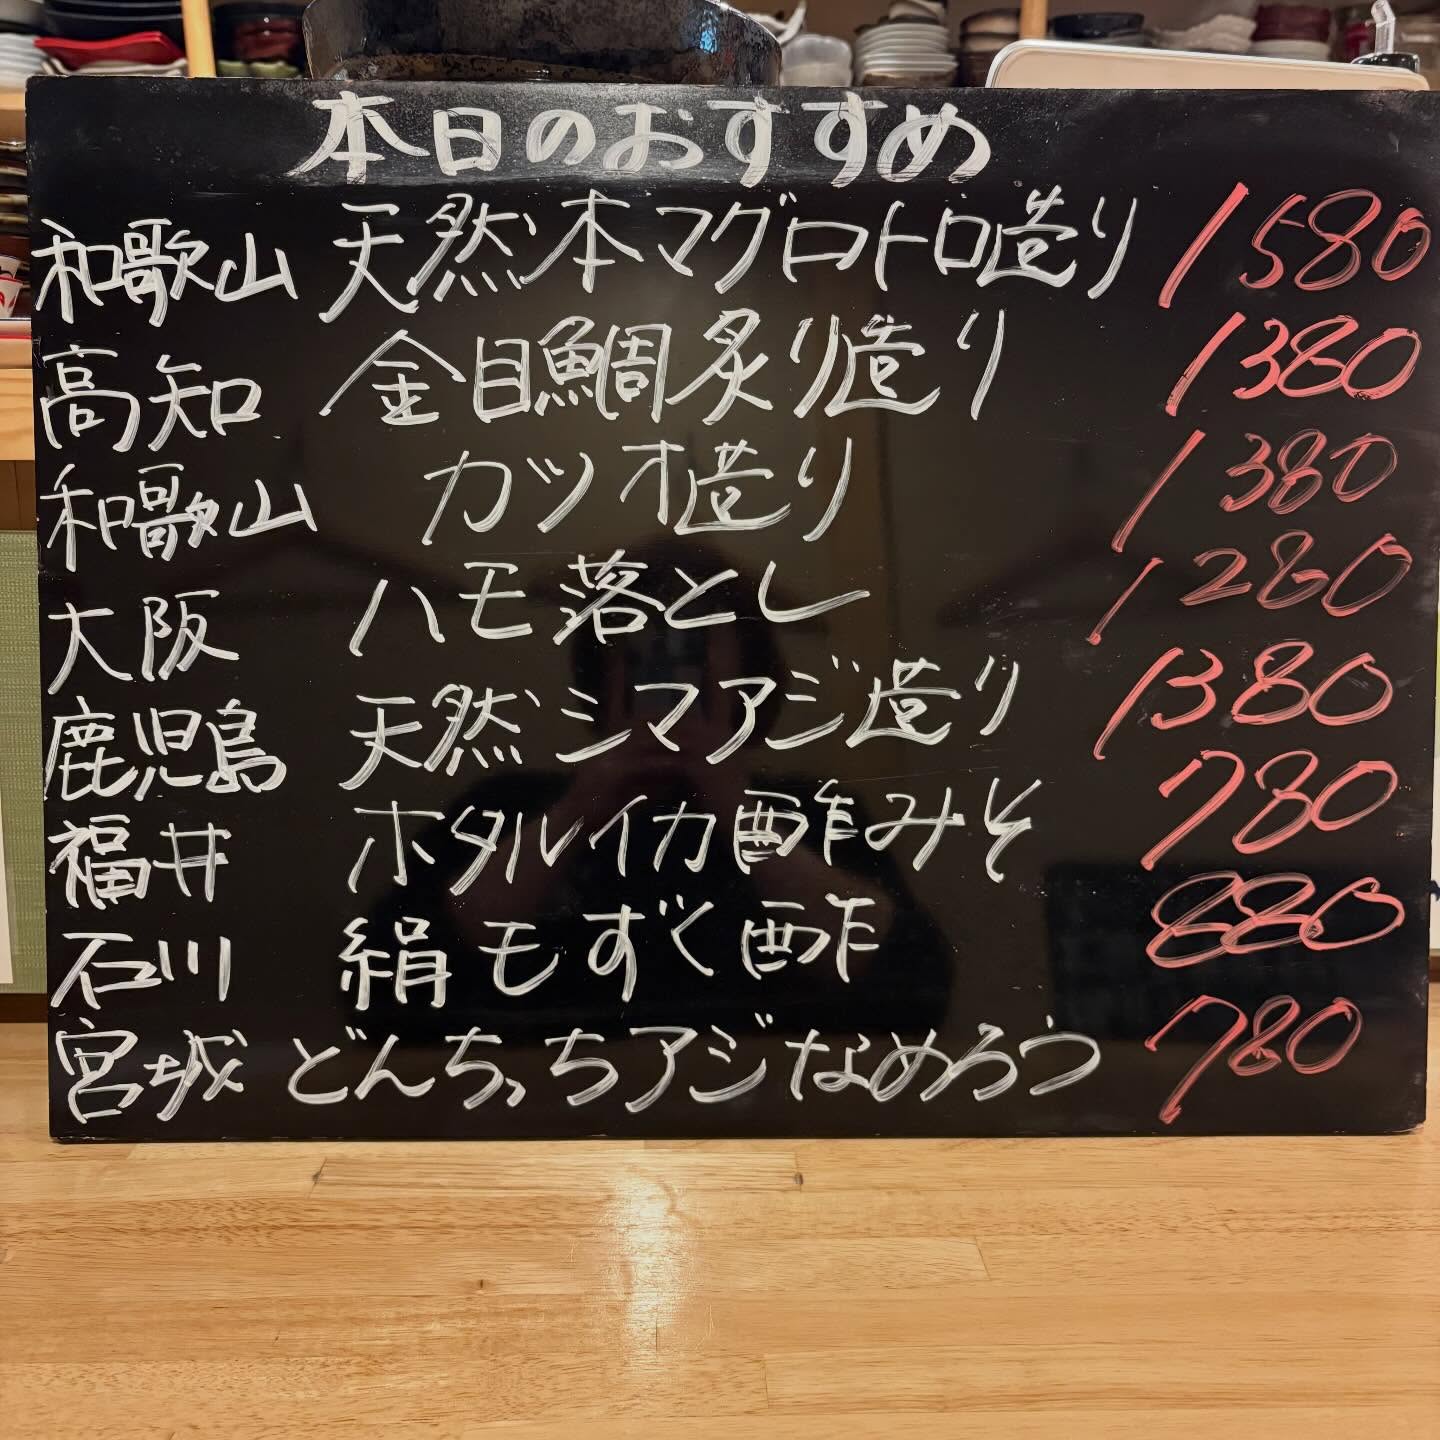 本日のおすすめ
和歌山 天然本マグロトロ造り 1580
高知 金目鯛炙り造り 1380
和歌山 カツオ造り 1380
大阪 ハモ落とし 1280
鹿児島 天然シマアジ造り 1380
福井 ホタルイカ酢みそ 780
石川 絹もずく酢 880
宮城 どんちっちアジなめろう 780